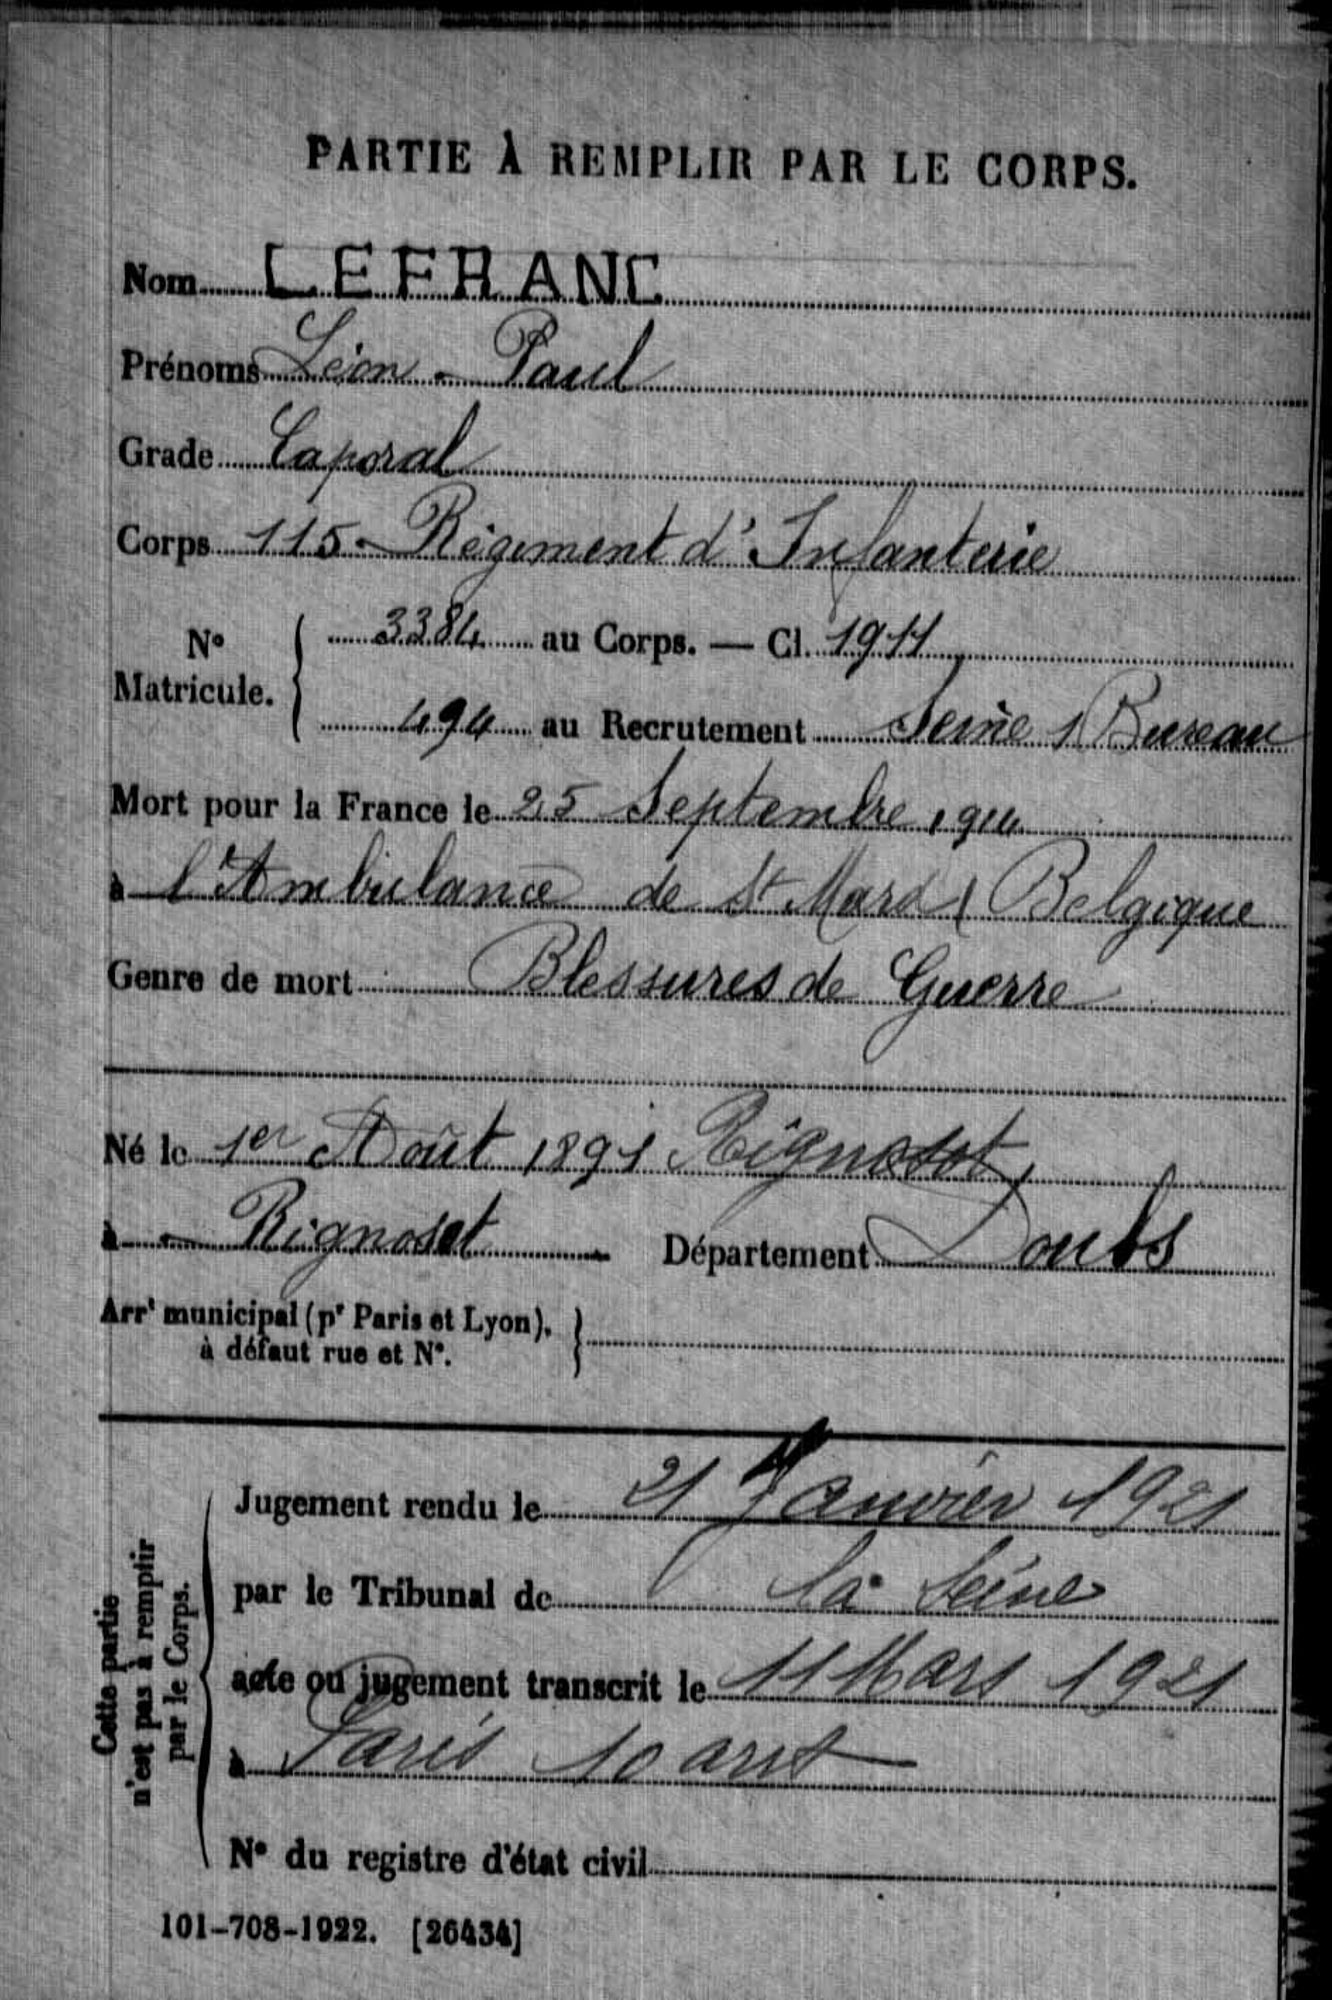 PARTIE À REMPLIR PAR LE CORPS.
Nom LEFRANC
Prénoms Léon - Paul
Grade Caporal
Corps 115e Régiment d'Infanterie
No Matricule. { 3384 au Corps. — Cl. 1911
494 au Recrutement Seine 1 Bureau
Mort pour la France le 25 Septembre 1914
à l'Ambulance de St Mard (Belgique
Genre de mort Blessures de Guerre
Né le 1er Août 1891 Rignosot
à - Rignosot Département Doubs
Arrt municipal (pr Paris et Lyon), }
à défaut rue et No.
Cette partie
n'est pas à remplir
par le Corps.
Jugement rendu le 21 Janvier 1921
par le Tribunal de la Seine
acte ou jugement transcrit le 11 Mars 1921
à Paris 10 arrt
No du registre d'état civil
101-708-1922. [26434]